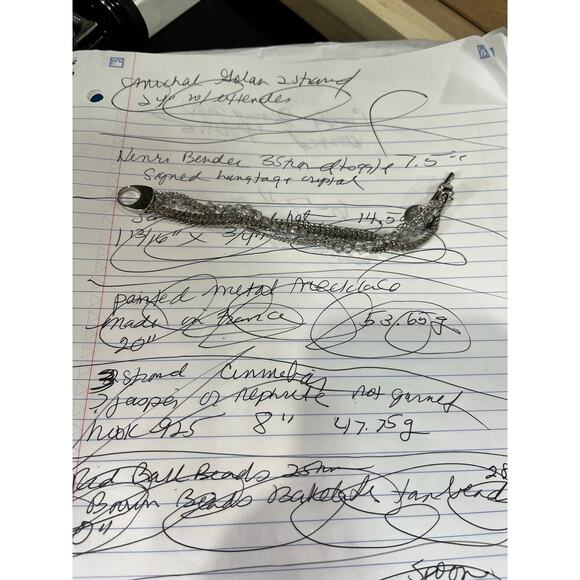 michal Golan 2 strand
24" w/extender
Henri Bendel 3 Strand toggle 7.5"
Signed hangtag crystal
14.5
1 13/16" X 3/4"
painted metal necklace
made in France 53.65g
20"
3 Strand Cinnebar
? jasper or nephrite not quried
hook 925 8" 47.75g
Red Ball Beads 25
Brown Beads Bakelite 28
8"
spoon